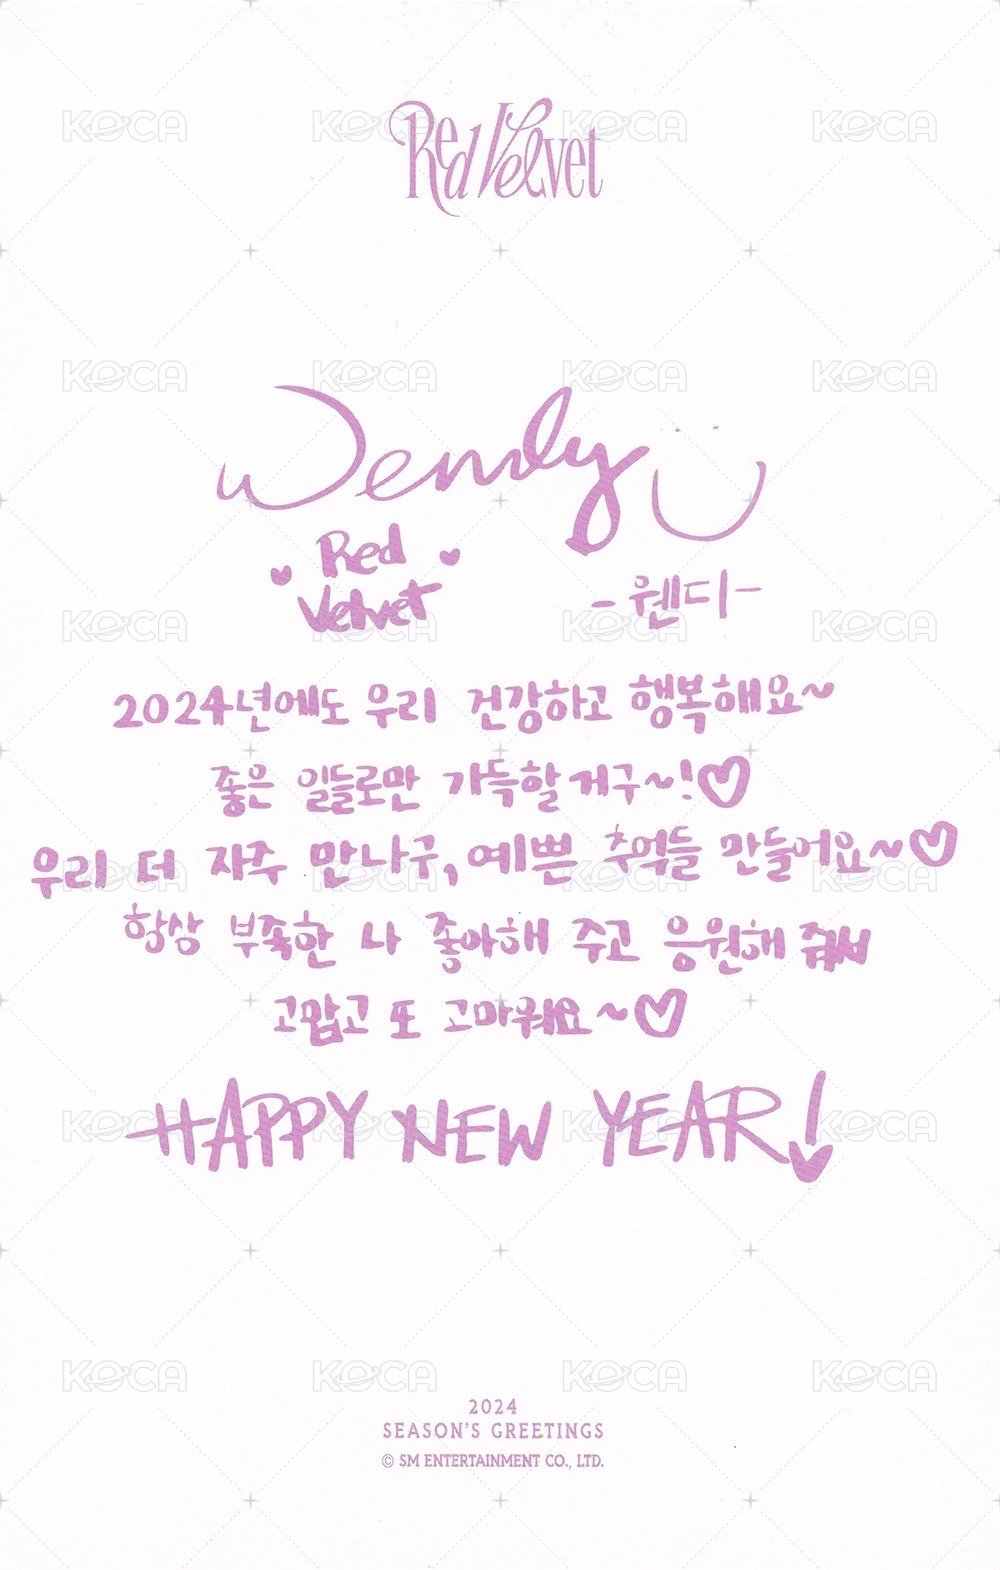 Red Velvet
Wendy
Red
Velvet
-웬디-
2024년에도 우리 건강하고 행복해요~
좋은 일들로만 가득할거구~!♡
우리 더 자주 만나구, 예쁜 추억들 만들어요~♡
항상 부족한 나 좋아해 주고 응원해 줘서
고맙고 또 고마워요~♡
HAPPY NEW YEAR!
2024
SEASON'S GREETINGS
© SM ENTERTAINMENT CO., LTD.
KOCA